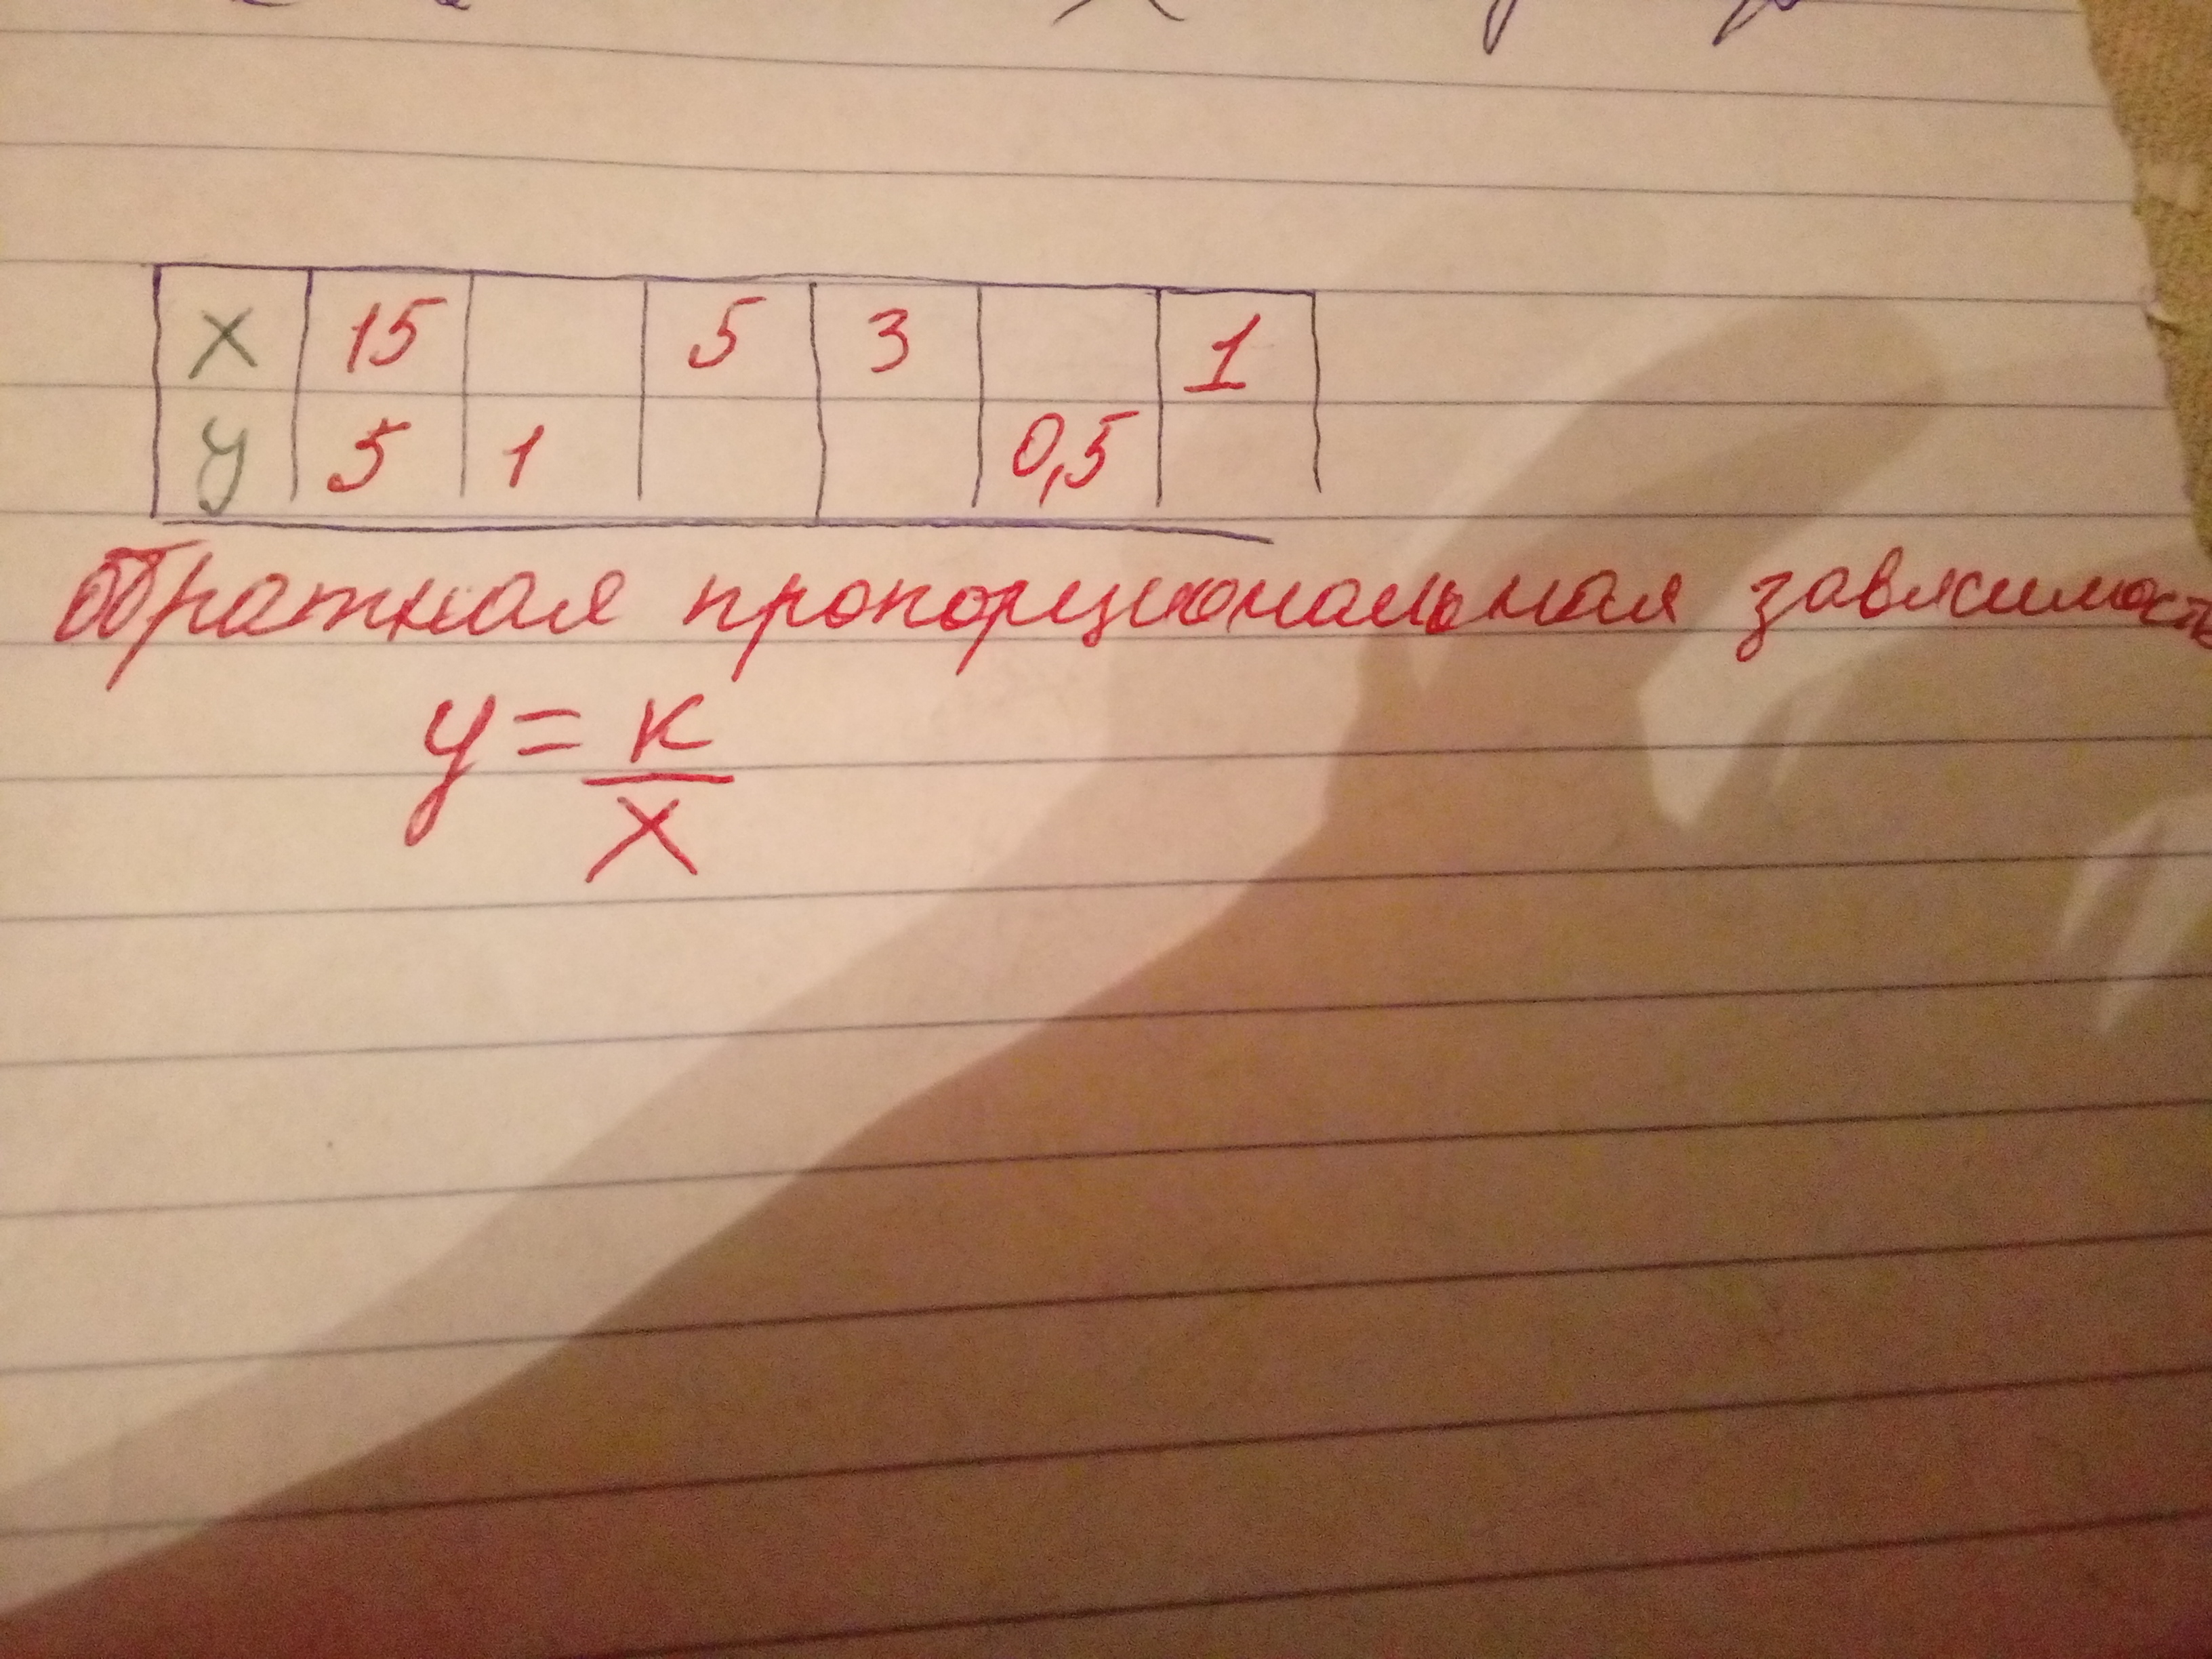 x 15 5 3 1
y 5 1 0,5
Обратная пропорциональная зависимость
y = к
x